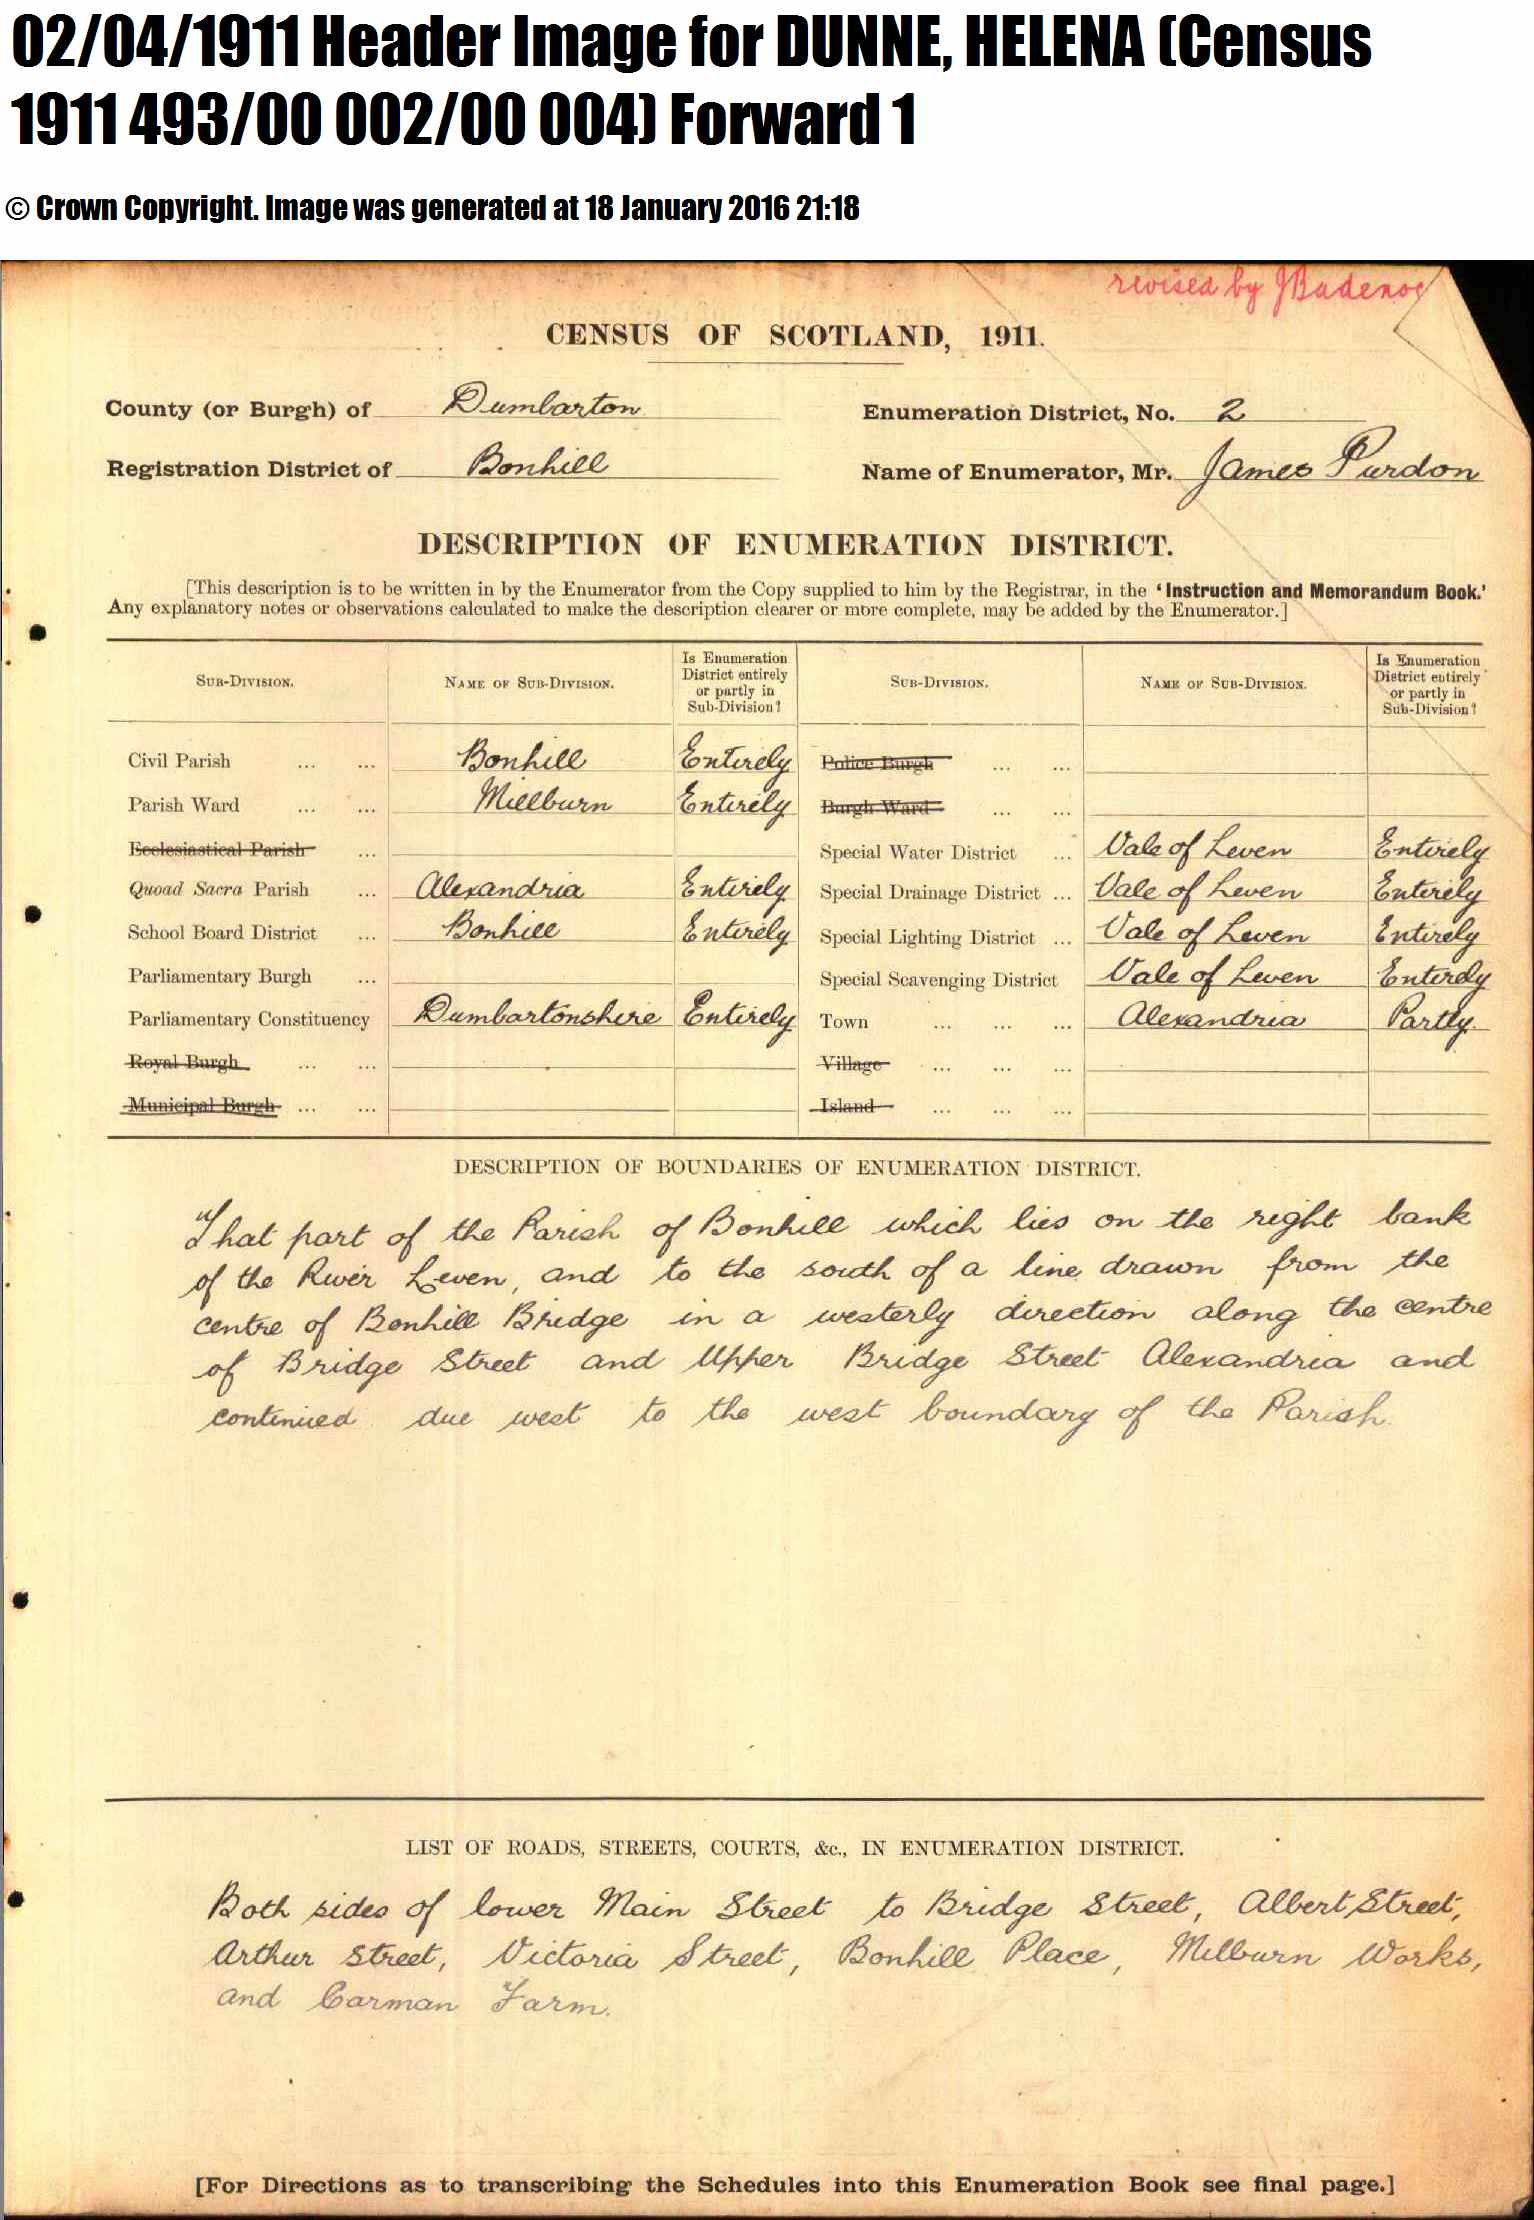 02/04/1911 Header Image for DUNNE, HELENA (Census
1911 493/00 002/00 004) Forward 1
© Crown Copyright. Image was generated at 18 January 2016 21:18
revised by J Badenoc
CENSUS OF SCOTLAND, 1911.
County (or Burgh) of Dumbarton Enumeration District, No. 2
Registration District of Bonhill Name of Enumerator, Mr. James Purdon
DESCRIPTION OF ENUMERATION DISTRICT.
[This description is to be written in by the Enumerator from the Copy supplied to him by the Registrar, in the 'Instruction and Memorandum Book.'
Any explanatory notes or observations calculated to make the description clearer or more complete, may be added by the Enumerator.]
SUB-DIVISION. NAME OF SUB-DIVISION. Is Enumeration District entirely or partly in Sub-Division? SUB-DIVISION. NAME OF SUB-DIVISION. Is Enumeration District entirely or partly in Sub-Division?
Civil Parish ... ... Bonhill Entirely Police Burgh ... ...
Parish Ward ... ... Millburn Entirely Burgh Ward ... ...
Ecclesiastical Parish ... Special Water District ... Vale of Leven Entirely
Quoad Sacra Parish ... Alexandria Entirely Special Drainage District ... Vale of Leven Entirely
School Board District ... Bonhill Entirely Special Lighting District ... Vale of Leven Entirely
Parliamentary Burgh ... Special Scavenging District Vale of Leven Entirely
Parliamentary Constituency Dumbartonshire Entirely Town ... ... ... Alexandria Partly.
Royal Burgh ... ... Village ... ... ...
Municipal Burgh ... ... Island ... ... ...
DESCRIPTION OF BOUNDARIES OF ENUMERATION DISTRICT.
That part of the Parish of Bonhill which lies on the right bank
of the River Leven, and to the south of a line drawn from the
centre of Bonhill Bridge in a westerly direction along the centre
of Bridge Street and Upper Bridge Street Alexandria and
continued due west to the west boundary of the Parish.
LIST OF ROADS, STREETS, COURTS, &c., IN ENUMERATION DISTRICT.
Both sides of lower Main Street to Bridge Street, Albert Street,
Arthur Street, Victoria Street, Bonhill Place, Milburn Works,
and Carman Farm.
[For Directions as to transcribing the Schedules into this Enumeration Book see final page.]